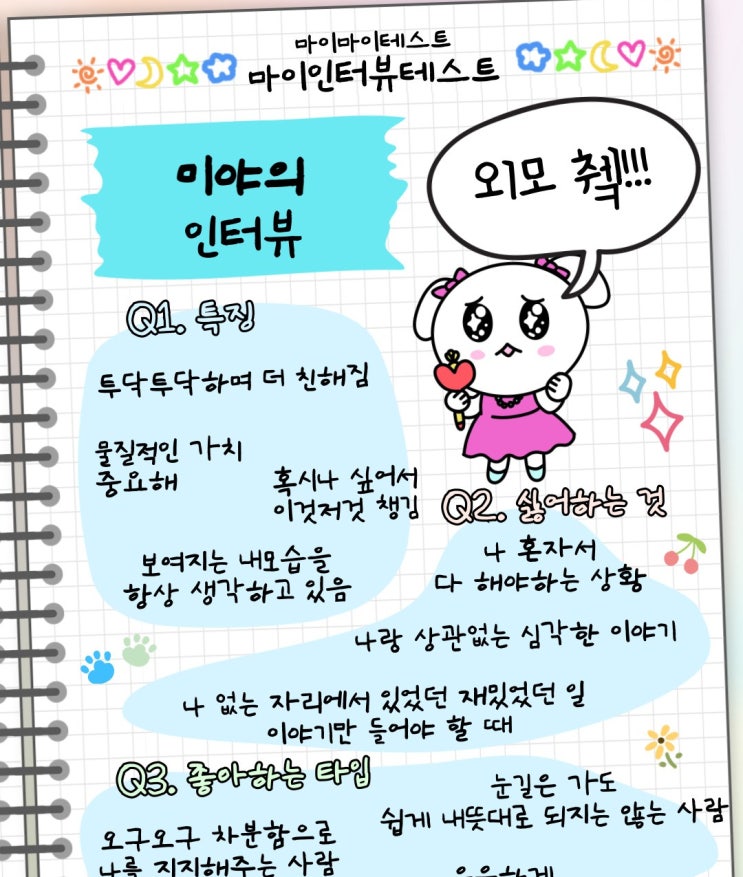 마이마이테스트
마이인터뷰테스트
미야의
인터뷰
외모 췤!!!
Q1. 특징
투닥투닥하며 더 친해짐
물질적인 가치
중요해
혹시나 싶어서
이것저것 챙김
보여지는 내모습을
항상 생각하고 있음
Q2. 싫어하는 것
나 혼자서
다 해야하는 상황
나랑 상관없는 심각한 이야기
나 없는 자리에서 있었던 재밌었던 일
이야기만 들어야 할 때
Q3. 좋아하는 타입
눈길은 가도
쉽게 내뜻대로 되지는 않는 사람
오구오구 차분함으로
나를 지지해주는 사람